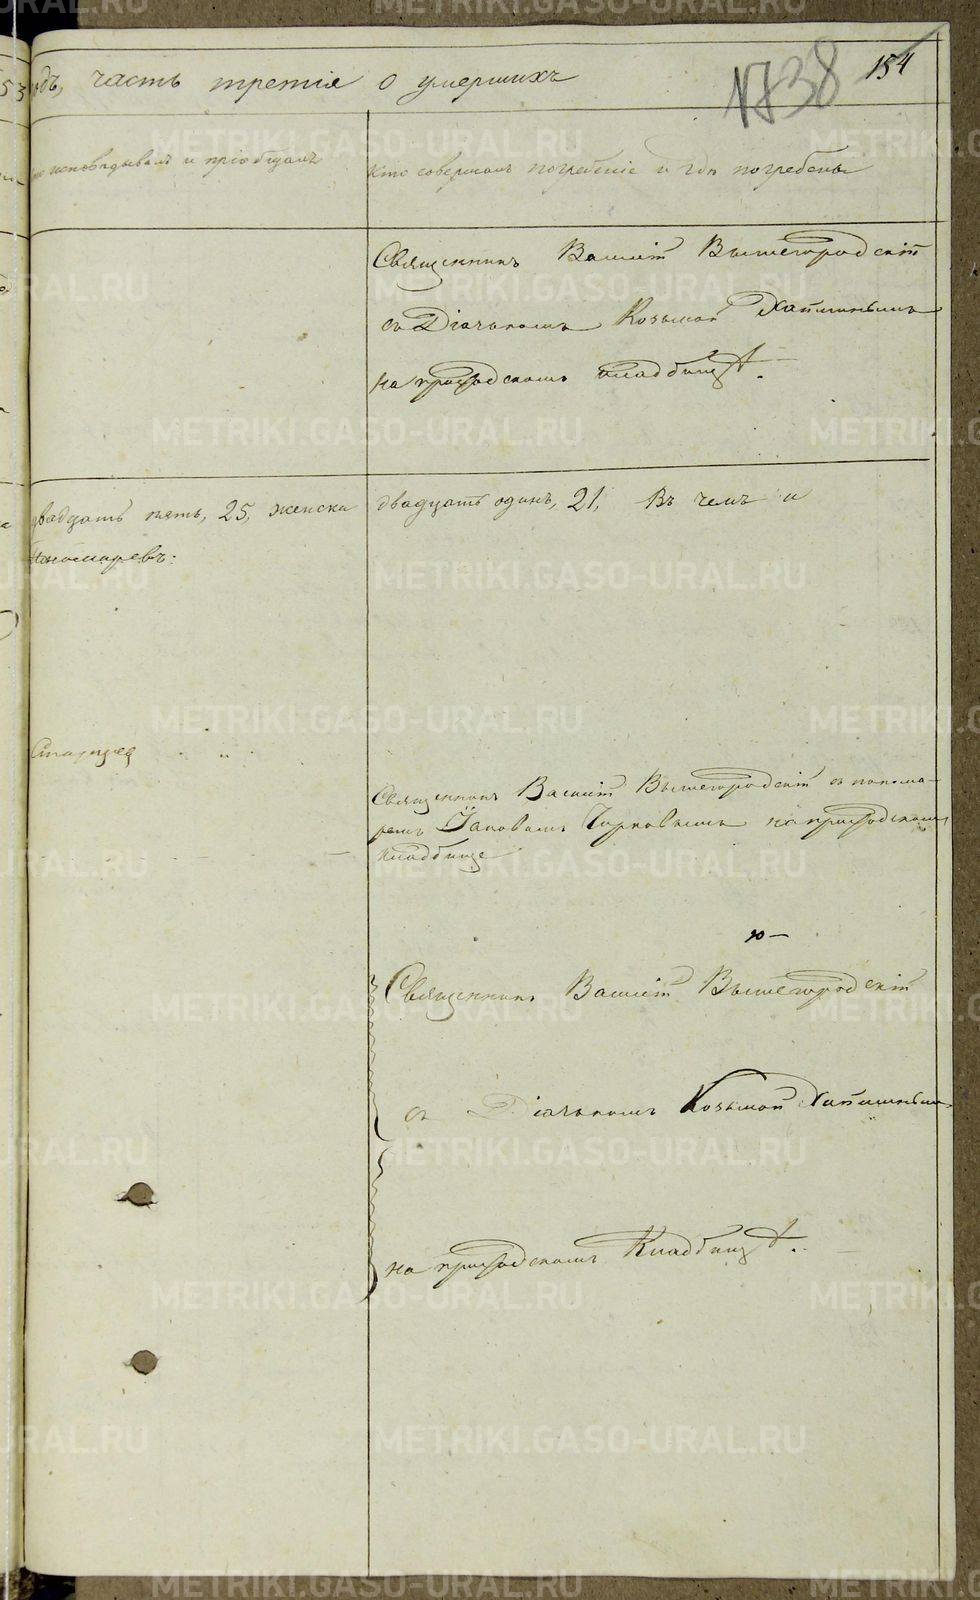 одъ, часть третія о умершихъ
154
N738
исповѣдывалъ и пріобщалъ
кто совершалъ погребеніе и гдѣ погребены
Священникъ Василій Вышегородскій
съ Діакономъ Козьмой Хатишнымъ
на приходскомъ кладбищѣ.
двадцать пять, 25, женска
двадцать одинъ, 21, Въ чемъ и
Пономаревъ:
Старица
Священникъ Василій Вышегородскій съ понома-
ремъ Іаковомъ на приходскомъ
кладбище
Священникъ Василій Вышегородскій
съ Діакономъ Козьмой Хатишнымъ
на приходскомъ Кладбищѣ.
METRIKI.GASO-URAL.RU